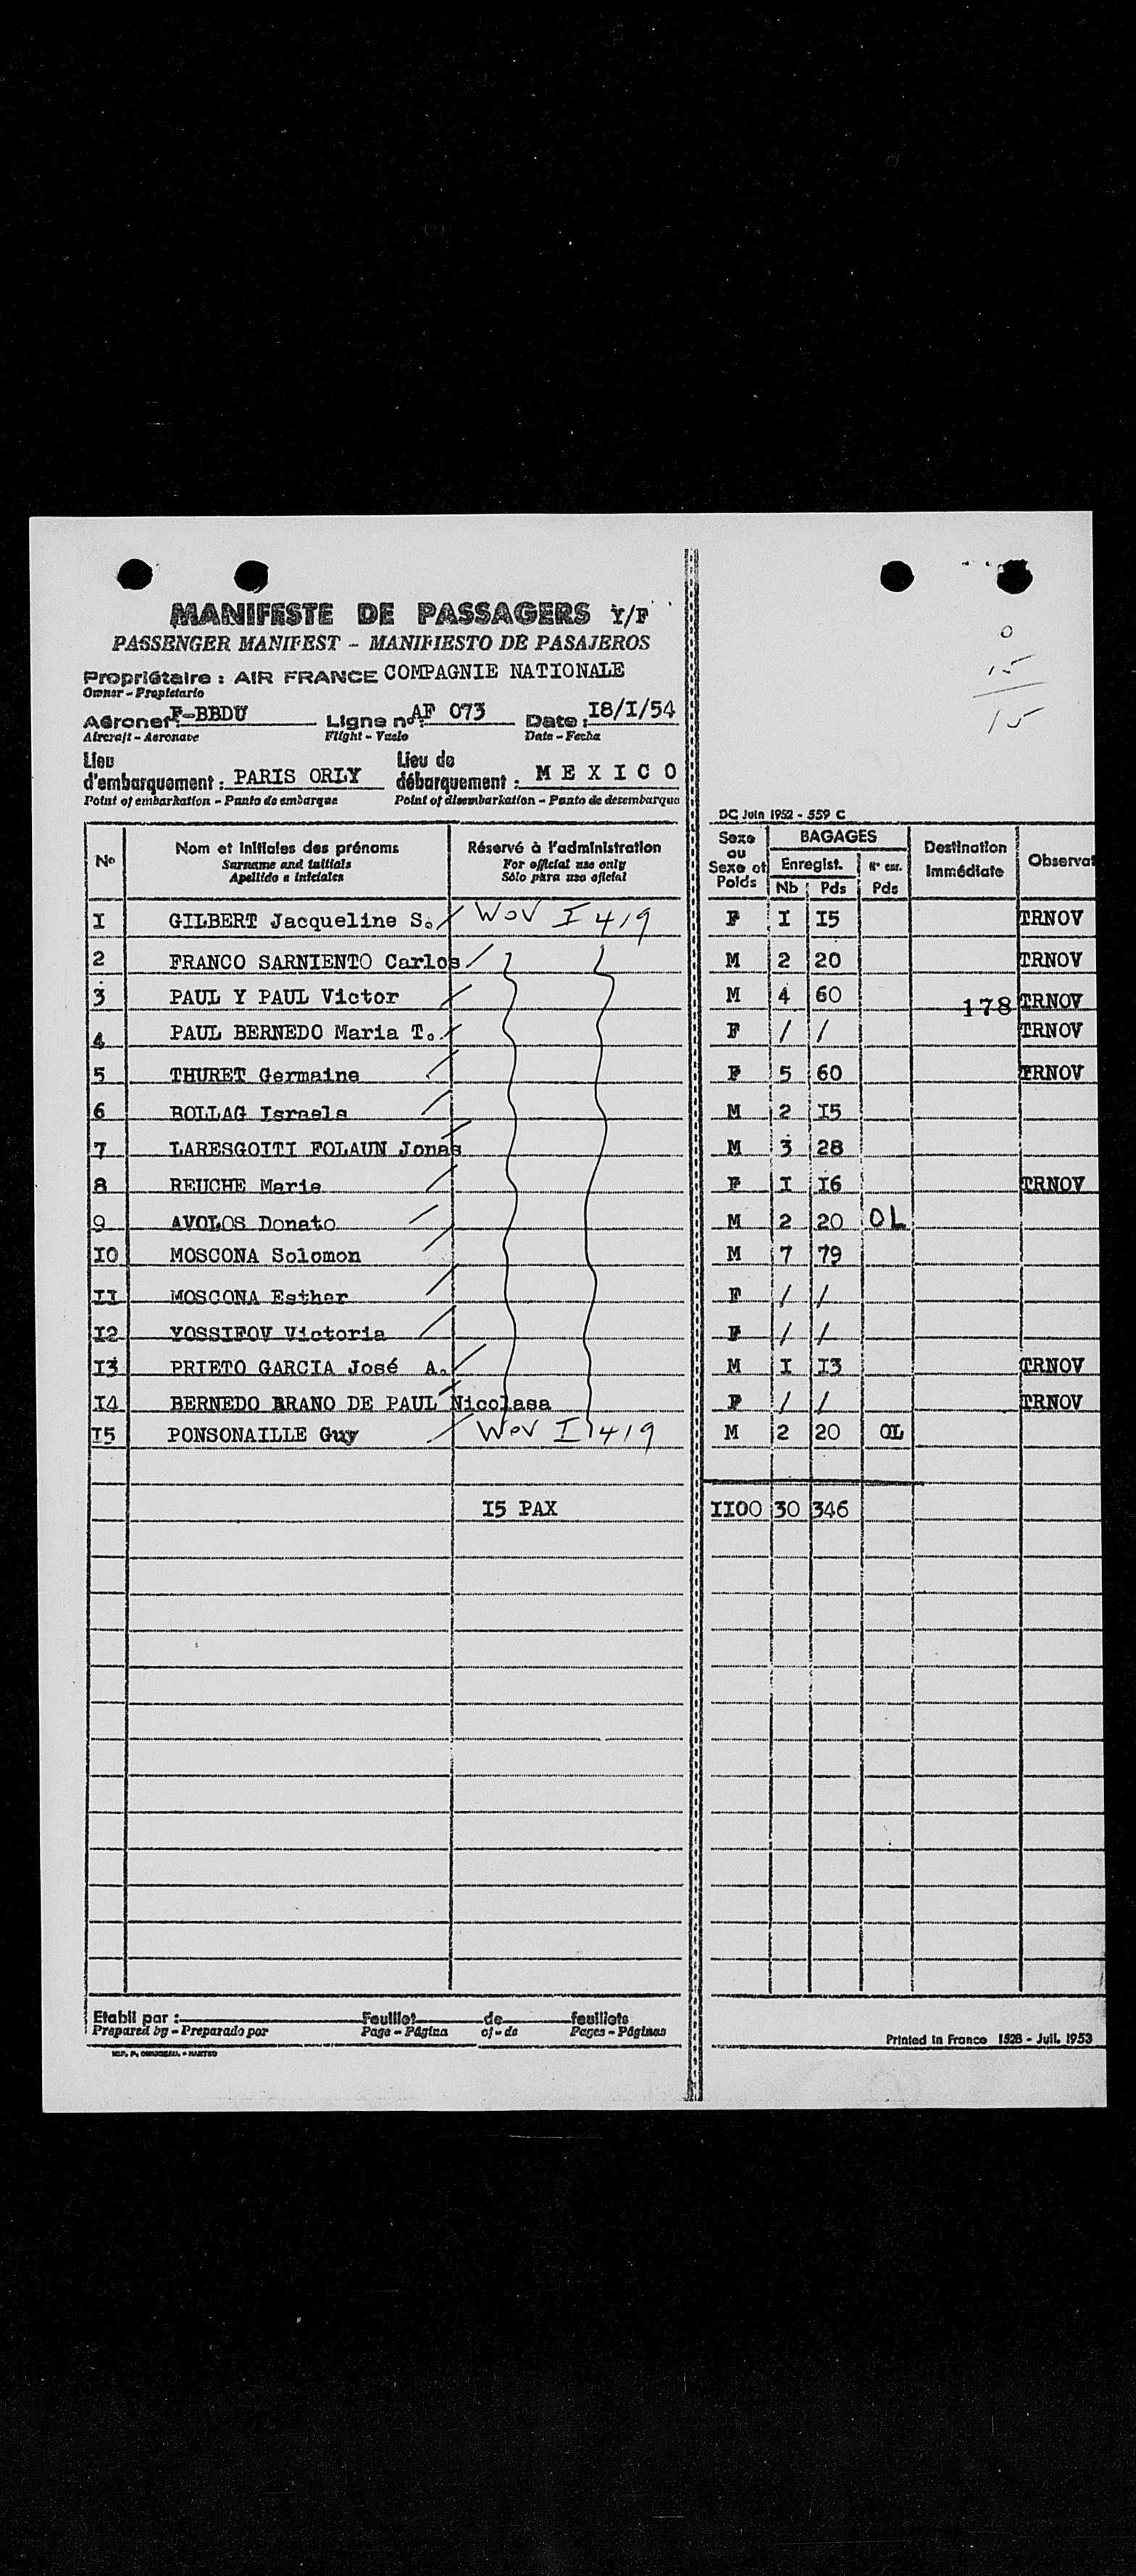 MANIFESTE DE PASSAGERS Y/F
PASSENGER MANIFEST - MANIFIESTO DE PASAJEROS
0
15
15
Propriétaire : AIR FRANCE COMPAGNIE NATIONALE
Owner - Propietario
Aéronef : F-BBDU Ligne n° : AF 073 Date : I8/I/54
Aircraft - Aeronave Flight - Vuelo Date - Fecha
Lieu d'embarquement : PARIS ORLY Lieu de débarquement : M E X I C O
Point of embarkation - Punto de embarque Point of disembarkation - Punto de desembarque
DC Juin 1952 - 559 C
N° Nom et initiales des prénoms Réservé à l'administration Sexe ou Sexe et Poids BAGAGES Destination immédiate Observat
Surname and initials For official use only Enregist. N° enr.
Apellido e iniciales Sólo para uso oficial Nb Pds Pds
I GILBERT Jacqueline S. / WOV I 419 F I I5 TRNOV
2 FRANCO SARNIENTO Carlos / M 2 20 TRNOV
3 PAUL Y PAUL Victor / M 4 60 178 TRNOV
4 PAUL BERNEDO Maria T. / F / / TRNOV
5 THURET Germaine / F 5 60 TRNOV
6 BOLLAG Israels / M 2 I5
7 LARESGOITI FOLAUN Jonas / M 3 28
8 REUCHE Marie / F I I6 TRNOV
9 AVOLOS Donato / M 2 20 OL
IO MOSCONA Solomon / M 7 79
II MOSCONA Esther / F / /
I2 YOSSIFOV Victoria / F / /
I3 PRIETO GARCIA José A. / M I I3 TRNOV
I4 BERNEDO BRANO DE PAUL Nicolasa / F / / TRNOV
I5 PONSONAILLE Guy / WOV I 419 M 2 20 OL
I5 PAX II00 30 346
Etabli par : Feuillet de feuillets
Prepared by - Preparado por Page - Página of - de Pages - Páginas
Printed in France 1528 - Juil. 1953